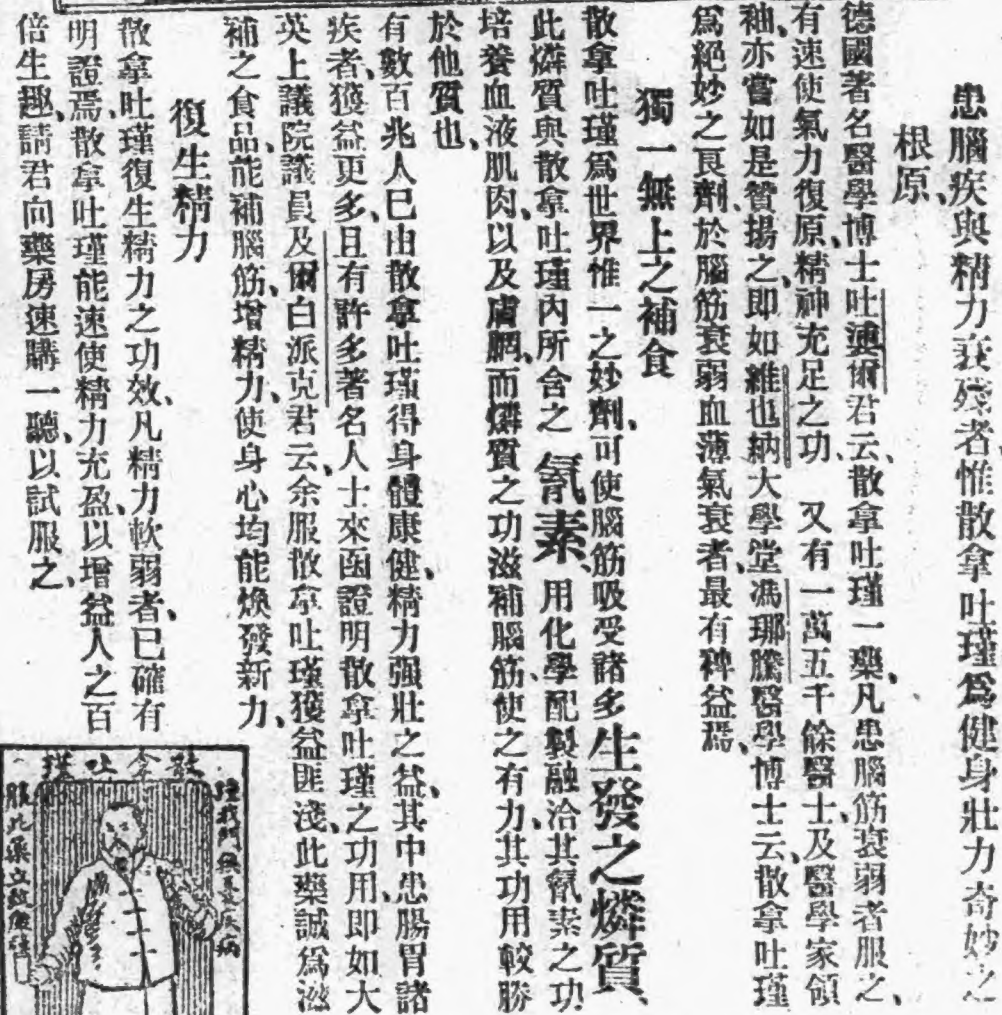 患腦疾與精力衰殘者、惟散拿吐瑾爲健身壯力奇妙之
根原、
德國著名醫學博士吐爾君云、散拿吐瑾一藥、凡患腦筋衰弱者服之、
有速使氣力復原、精神充足之功、又有一萬五千餘醫士、及醫學家領
袖、亦嘗如是贊揚之、即如維也納大學堂馮瑯騰醫學博士云、散拿吐瑾
爲絕妙之良劑、於腦筋衰弱血薄氣衰者、最有裨益焉、
獨一無上之補食
散拿吐瑾爲世界惟一之妙劑、可使腦筋吸受諸多生發之燐質、
此燐質與散拿吐瑾內所含之氰素、用化學配製融洽其氰素之功
培養血液肌肉、以及膚膶、而燐質之功滋補腦筋、使之有力、其功用較勝
於他質也、
有數百兆人已由散拿吐瑾得身體康健、精力强壯之益、其中患腸胃諸
疾者、獲益更多、且有許多著名人士來函證明散拿吐瑾之功用、即如大
英上議院議員及爾白派克君云、余服散拿吐瑾獲益匪淺、此藥誠爲滋
補之食品、能補腦筋、增精力、使身心均能煥發新力、
復生精力
散拿吐瑾復生精力之功效、凡精力軟弱者、已確有
明證焉、散拿吐瑾能速使精力充盈、以增益人之百
倍生趣、請君向藥房速購一聽、以試服之、
散拿吐瑾
進我門無憂疾病
服此藥立致健